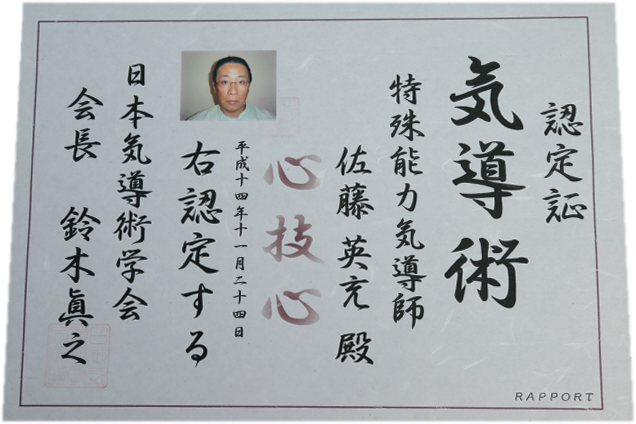 認定証
気導術
特殊能力気導師
佐藤英充殿
心技心
平成十四年十一月二十四日
右認定する
日本気導術学会
会長 鈴木眞之
RAPPORT